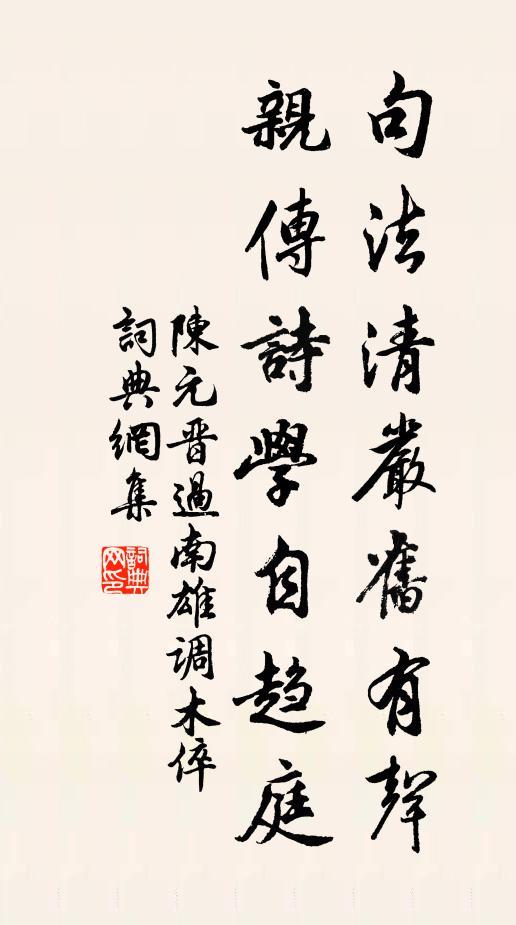 句法清嚴舊有聲
親傳詩學自趋庭
陳元晋過南雄調木倅
詞典網集
詞典网印